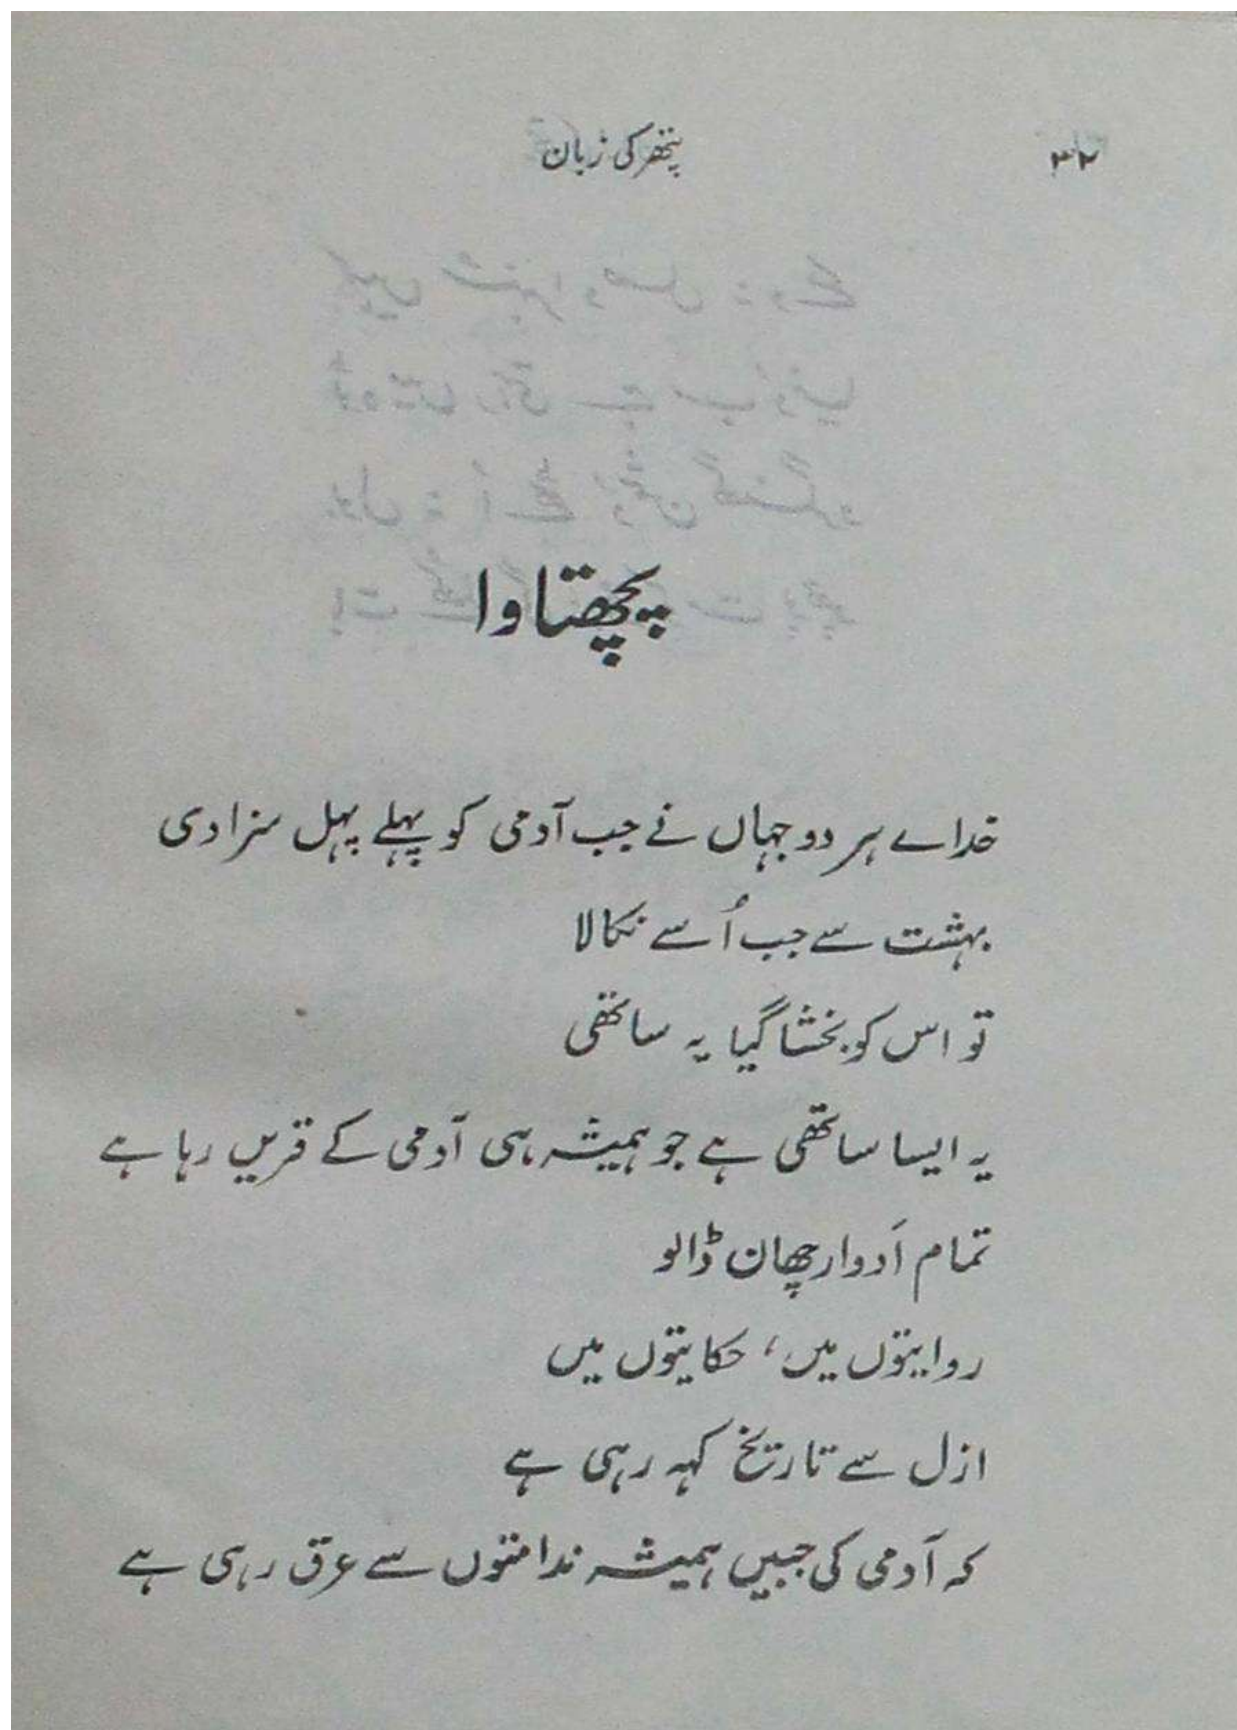 ۳۲
پتھر کی زبان
پچھتاوا
خدائے ہر دو جہاں نے جب آدمی کو پہلے پہل سزا دی
بہشت سے جب اُسے نکالا
تو اس کو بخشا گیا یہ ساتھی
یہ ایسا ساتھی ہے جو ہمیشہ ہی آدمی کے قریں رہا ہے
تمام اَدوار چھان ڈالو
روایتوں میں، حکایتوں میں
ازل سے تاریخ کہہ رہی ہے
کہ آدمی کی جبیں ہمیشہ ندامتوں سے عرق رہی ہے